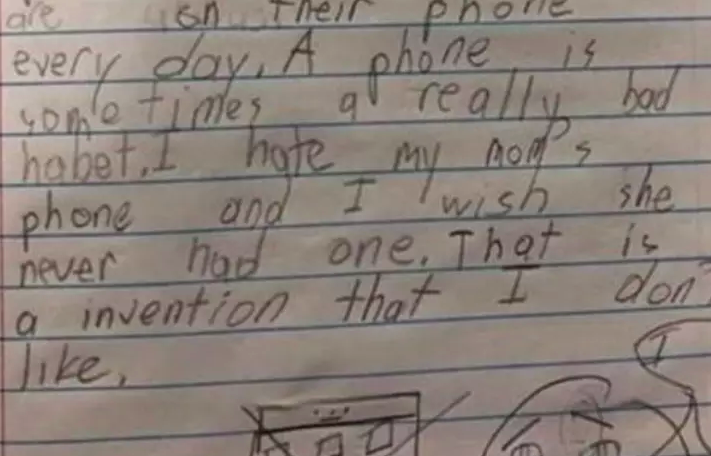 are on their phone
every day. A phone is
sometimes a really bad
habet. I hate my mom's
phone and I wish she
never had one. That is
a invention that I don'
like.
I